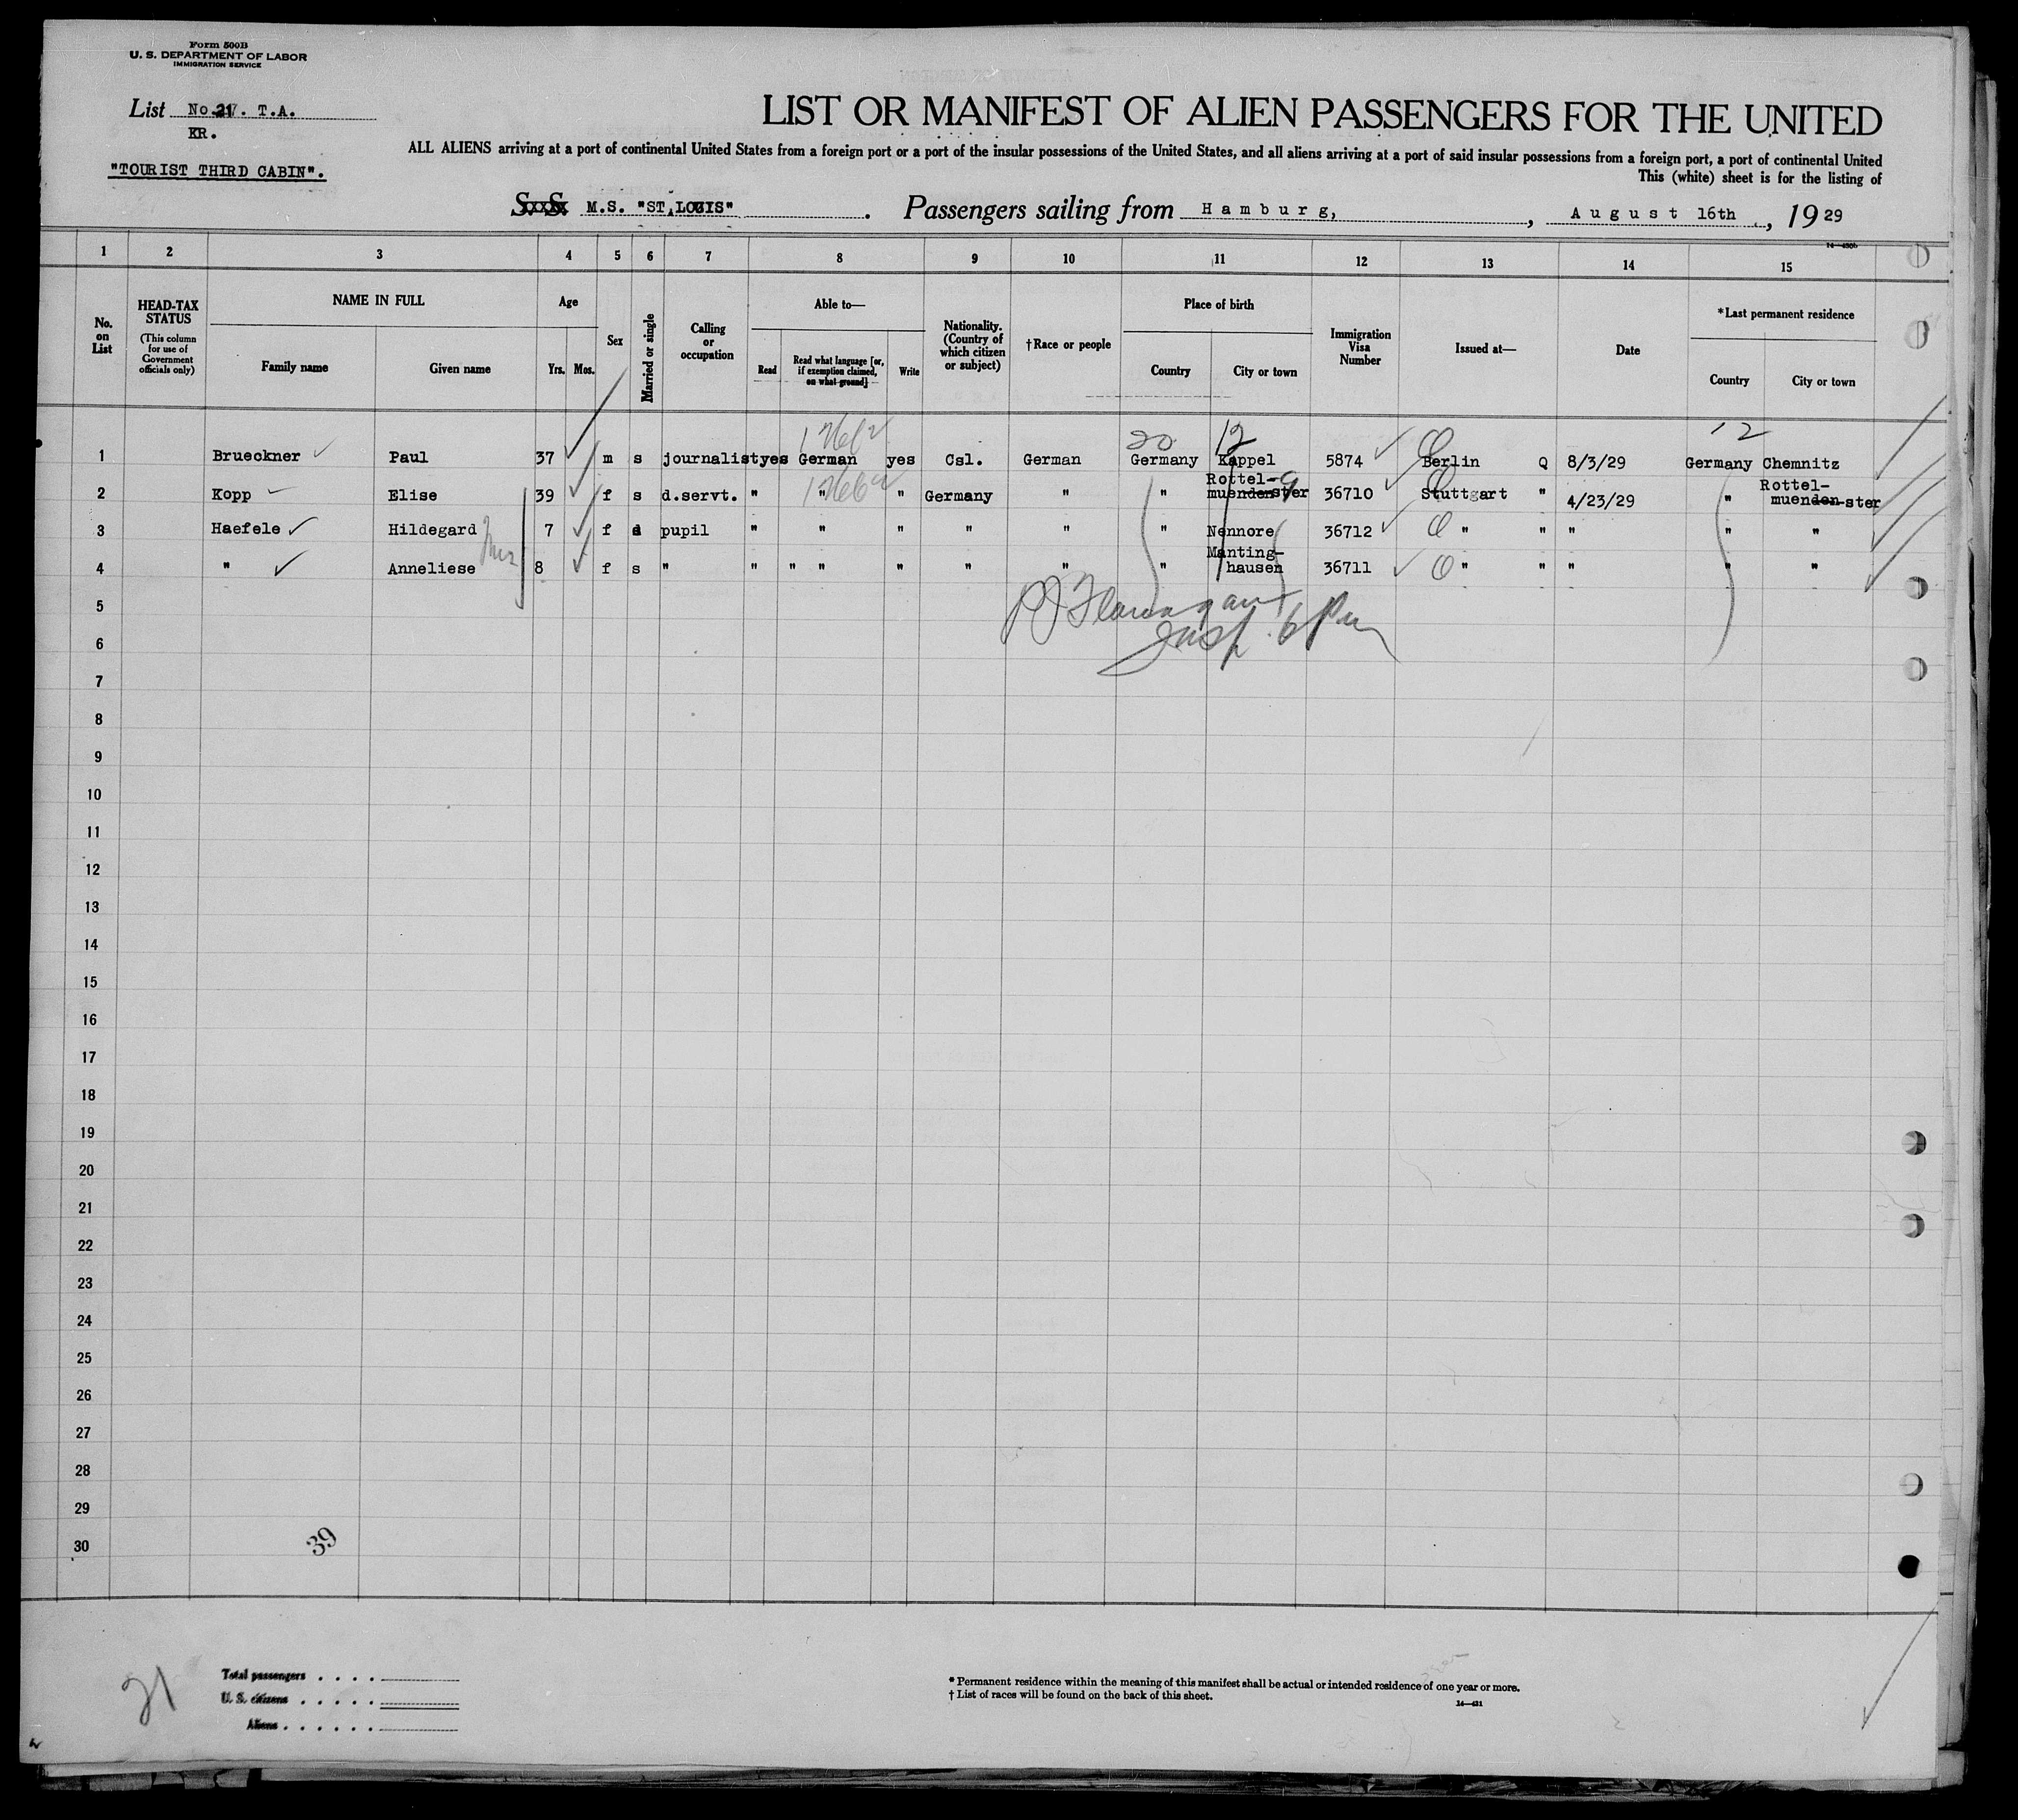 Form 500B
U. S. DEPARTMENT OF LABOR
IMMIGRATION SERVICE
List No. T.A.
KR.
"TOURIST THIRD CABIN".
LIST OR MANIFEST OF ALIEN PASSENGERS FOR THE UNITED
ALL ALIENS arriving at a port of continental United States from a foreign port or a port of the insular possessions of the United States, and all aliens arriving at a port of said insular possessions from a foreign port, a port of continental United
This (white) sheet is for the listing of
S. S. M.S. "ST.LOUIS" . Passengers sailing from Hamburg, , August 16th , 1929
1 2 3 4 5 6 7 8 9 10 11 12 13 14 15
No. on List
HEAD-TAX STATUS
(This column for use of Government officials only)
NAME IN FULL
Family name Given name
Age
Yrs. Mos.
Sex
Married or single
Calling or occupation
Able to—
Read
Read what language [or, if exemption claimed, on what ground]
Write
Nationality. (Country of which citizen or subject)
†Race or people
Place of birth
Country City or town
Immigration Visa Number
Issued at—
Date
*Last permanent residence
Country City or town
20 12 12
1 Brueckner Paul 37 m s journalist yes German yes Csl. German Germany Kappel 5874 Berlin Q 8/3/29 Germany Chemnitz
2 Kopp Elise 39 f s d.servt. " " " Germany " " Rottel-muenden-ster 36710 Stuttgart " 4/23/29 " Rottel-muenden-ster
3 Haefele Hildegard 7 f s pupil " " " " " " Nennore 36712 " " " " "
4 " Anneliese 8 f s " " " " " " " " Manting-hausen 36711 " " " " "
5
P J Flanagan
Insp.
6
7
8
9
10
11
12
13
14
15
16
17
18
19
20
21
22
23
24
25
26
27
28
29
30
39
21
Total passengers . . . .
U. S. citizens . . . . .
Aliens . . . . . .
* Permanent residence within the meaning of this manifest shall be actual or intended residence of one year or more.
† List of races will be found on the back of this sheet.
14—421